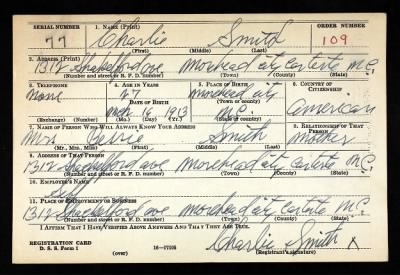 SERIAL NUMBER 1. NAME (Print) ORDER NUMBER
77 Charlie Smith 109
(First) (Middle) (Last)
2. ADDRESS (Print)
1312 Shackelford ave Morehead city Carteret N.C.
(Number and street or R. F. D. number) (Town) (County) (State)
3. TELEPHONE 4. AGE IN YEARS 5. PLACE OF BIRTH 6. COUNTRY OF CITIZENSHIP
None 27 Morehead city
DATE OF BIRTH (Town or county)
Mch 16 1913 N.C. American
(Exchange) (Number) (Mo.) (Day) (Yr.) (State or country)
7. NAME OF PERSON WHO WILL ALWAYS KNOW YOUR ADDRESS 8. RELATIONSHIP OF THAT PERSON
Mrs Smith Mother
(Mr., Mrs., Miss) (First) (Middle) (Last)
9. ADDRESS OF THAT PERSON
1312 Shackelford ave Morehead city Carteret N.C.
(Number and street or R. F. D. number) (Town) (County) (State)
10. EMPLOYER'S NAME
self
11. PLACE OF EMPLOYMENT OR BUSINESS
1312 Shackelford ave Morehead city Carteret N.C.
(Number and street or R. F. D. number) (Town) (County) (State)
I AFFIRM THAT I HAVE VERIFIED ABOVE ANSWERS AND THAT THEY ARE TRUE.
REGISTRATION CARD
D. S. S. Form 1 16-17105 Charlie Smith x
(over) (Registrant's signature)